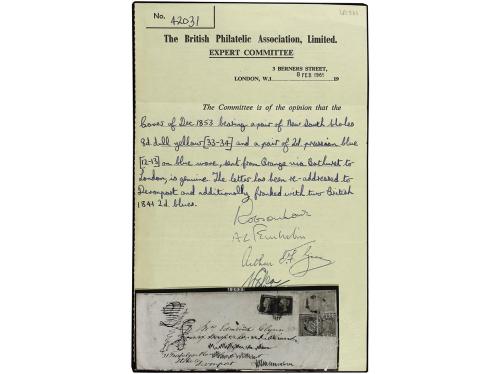 No. 42031
The British Philatelic Association, Limited.
EXPERT COMMITTEE
3 BERNERS STREET,
LONDON, W.1 8 FEB 1965 19
The Committee is of the opinion that the
Cover of Dec 1853 bearing a pair of New South Wales
8d. dull yellow [33-34] and a pair of 2d. prussian blue
[12-13] on blue wove, sent from Orange via Bathurst to
London, is genuine. The letter has been re-addressed to
Devonport and additionally franked with two British
1841 2d. blues.
Robson Lowe
Arthur
Devonport